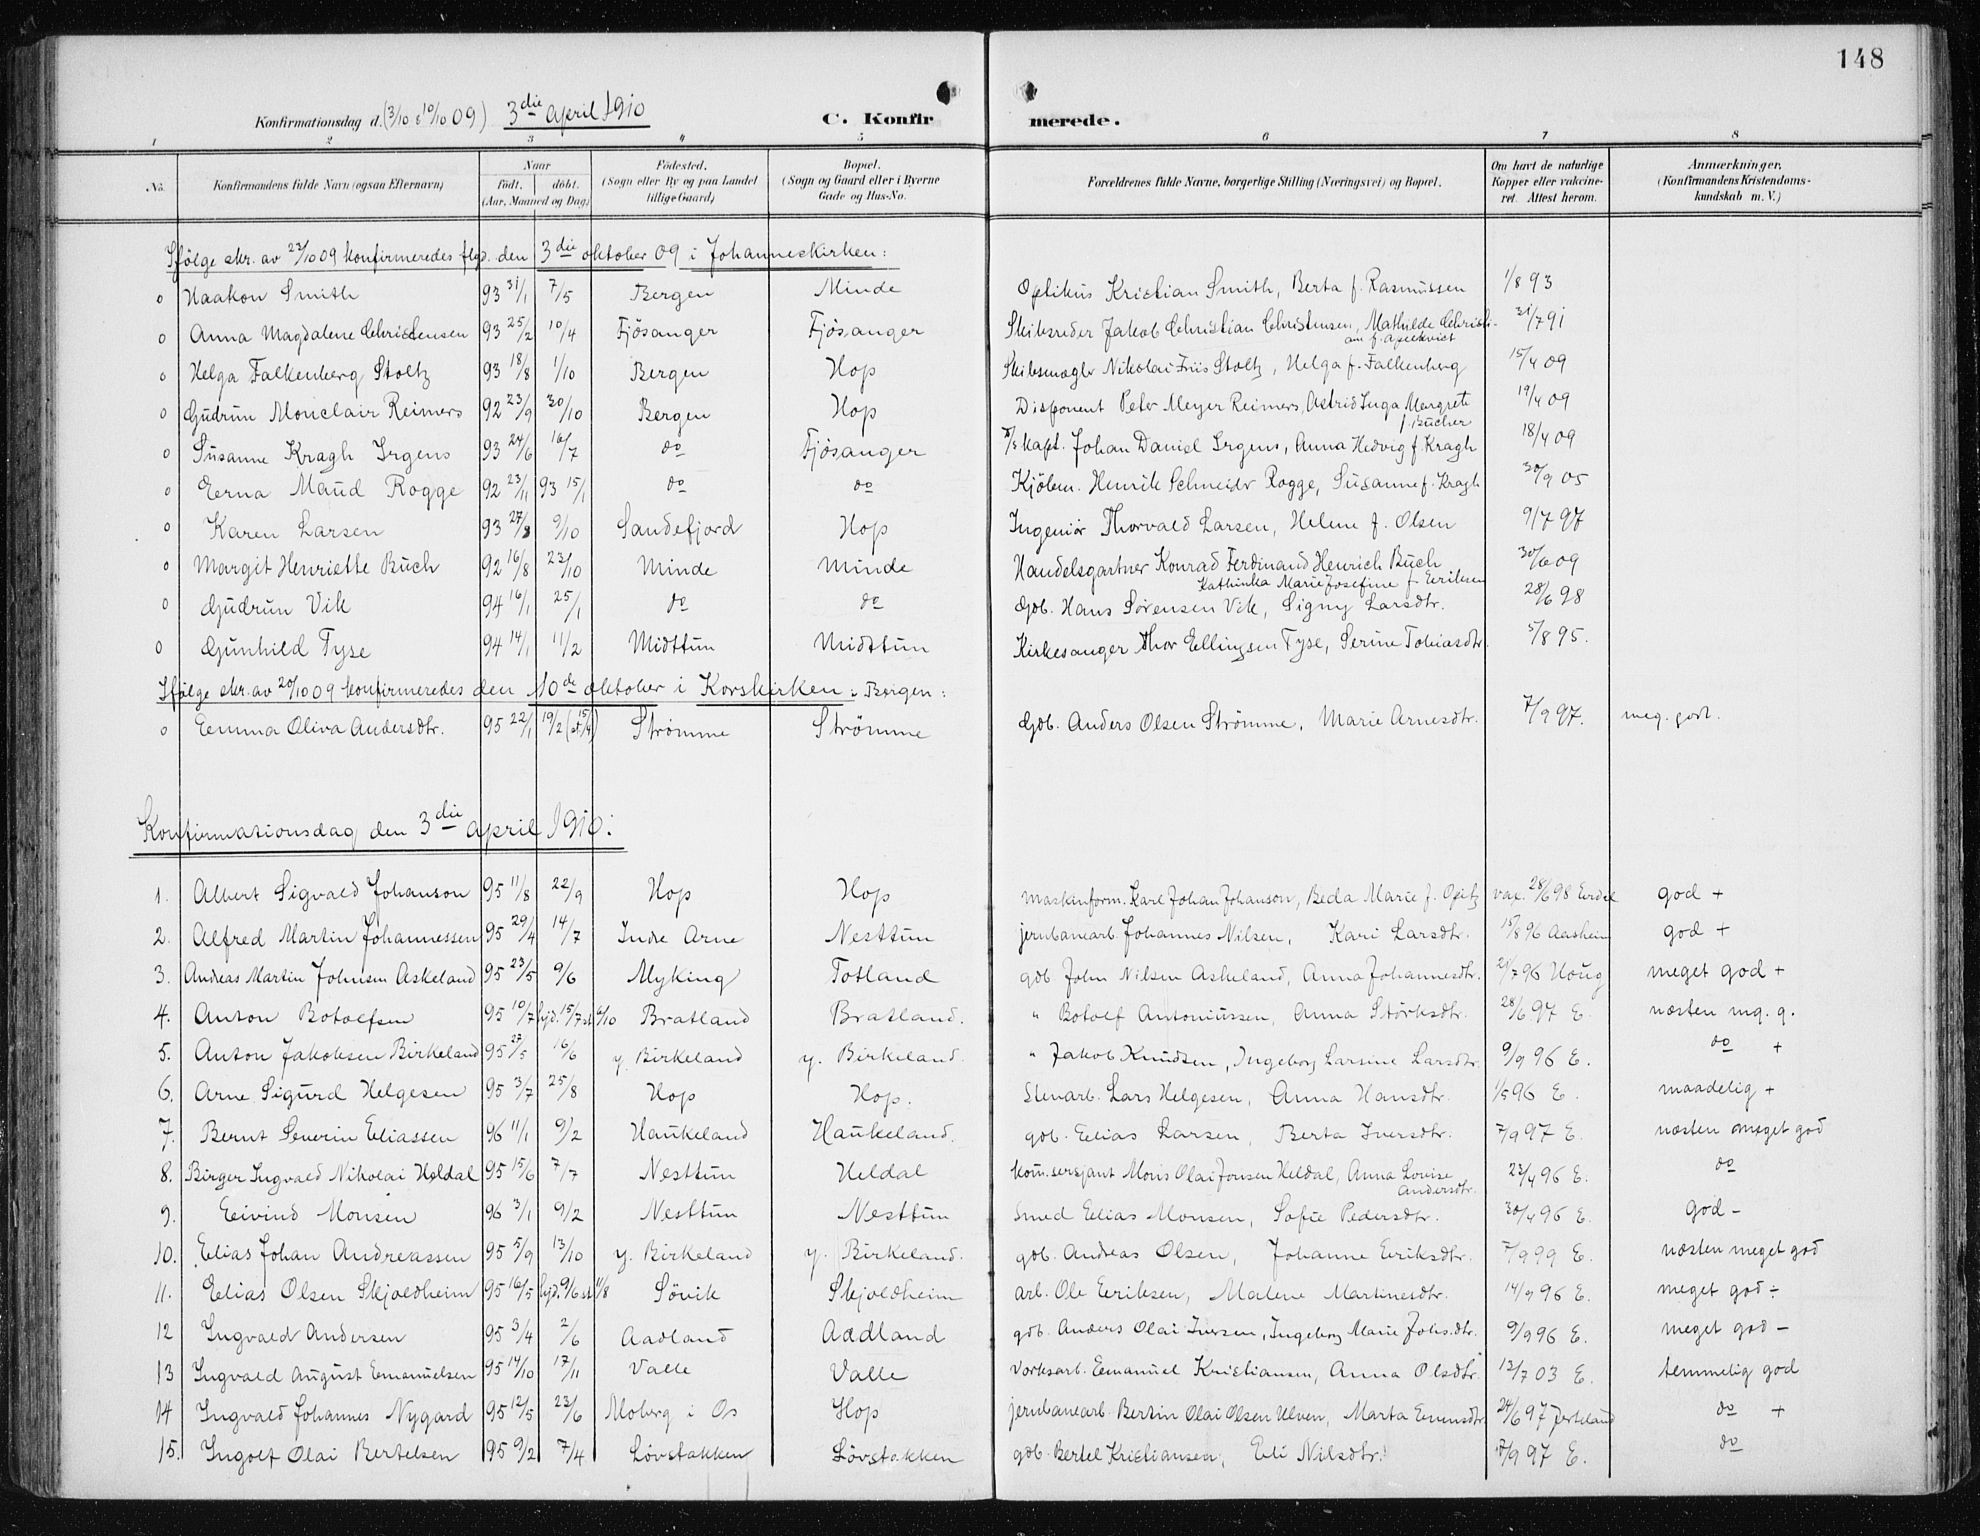 148
Konfirmationsdag d. (3/10 & 10/10 09) 3die april 1910 C. Konfirmerede.
1 2 3 4 5 6 7 8
No. Konfirmandens fulde Navn (ogsaa Efternavn) Naar født. døbt. (Aar, Maaned og Dag) Fødested. (Sogn eller By og paa Landet tillige Gaard) Bopæl. (Sogn og Gaard eller i Byerne Gade og Hus-No. Forældrenes fulde Navne, borgerlige Stilling (Næringsvei) og Bopæl. Om havt de naturlige Kopper eller vakcineret. Attest herom. Anmærkninger. (Konfirmandens Kristendomskundskab m. V.)
Ifølge skr. av 23/10 09 konfirmeredes flgd. den 3die oktober 09 i Johanneskirken:
o Haakon Smith 93 31/1 7/5 Bergen Minde Optikus Kristian Smith, Berta f. Rasmussen 1/8 93
o Anna Magdalene Christensen 93 25/2 10/4 Fjösanger Fjösanger Skibsreder Jakob Christian Christensen, Mathilde 31/7 91
o Helga Falkenberg Stoltz 93 18/8 1/10 Bergen Hop Skibsmægler Nikolai Friis Stoltz, Helga f. Falkenberg 15/4 09
o Gudrun Monclair Reimers 92 23/9 30/10 Bergen Hop Disponent Peter Meyer Reimers, Astrid Inga Margrete f. Bucher 19/4 09
o Susanne Kragh Irgens 93 24/6 16/7 do Fjösanger Kapt. Johan Daniel Irgens, Anna Hedvig f. Kragh 18/4 09
o Erna Maud Rogge 92 23/11 93 15/1 do do Kjöbm. Henrik Schneider Rogge, Susanne f. Kragh 30/9 05
o Karen Larsen 93 27/8 9/10 Sandefjord Hop Ingeniør Thorvald Larsen, Helene f. Olsen 9/7 97
o Margit Henriette Buch 92 16/8 23/10 Minde Minde Handelsgartner Konrad Ferdinand Henrich Buch Kathinka Marie Josefine f. Eriksen 30/6 09
o Gudrun Vik 94 16/1 25/1 do do Gdb. Hans Sörensen Vik, Signy Larsdtr. 28/6 98
o Gunhild Tyse 94 14/1 11/2 Midttun Midttun Kirkesanger Thor Ellingsen Tyse, Serine Tobiasdtr. 5/8 95.
Ifølge skr. av 20/10 09 konfirmeredes den 10de oktober i Korskirken i Bergen:
o Emma Oliva Andersdtr. 95 22/1 19/2 (st. 15/4) Strömme Strömme Gdb. Anders Olsen Strömme, Marie Arnesdtr. 7/9 97. meg. godt.
Konfirmationsdag den 3die april 1910:
1. Albert Sigvald Johanson 95 11/8 22/9 Hop Hop maskinform. Karl Johan Johanson, Beda Marie f. Opitz vax. 28/6 98 god +
2. Alfred Martin Johannessen 95 29/4 14/7 Indre Arne Nesttun jernbanearb. Johannes Nilsen, Kari Larsdtr. 15/8 96 Aasheim god +
3. Andreas Martin Johnsen Askeland 95 23/5 9/6 Myking Totland gdb. John Nilsen Askeland, Anna Johannesdtr. 21/7 96 Houg meget god +
4. Anton Botolfsen 95 10/7 hjd. 15/7 st. 6/10 Bratland Bratland. " Botolf Antoniussen, Anna Störksdtr. 28/6 97 E. næsten mg. g.
5. Anton Jakobsen Birkeland 95 27/5 16/6 y. Birkeland y. Birkeland. " Jakob Knudsen, Ingeborg Larsine Larsdtr. 9/9 96 E. do +
6. Arne Sigurd Helgesen 95 3/7 25/8 Hop Hop. Stenarb. Lars Helgesen, Anna Hansdtr. 1/5 96 E. maadelig +
7. Bernt Severin Eliassen 96 11/1 9/2 Haukeland Haukeland. gdb. Elias Larsen, Berta Iversdtr. 7/9 97 E. næsten meget god
8. Birger Ingvald Nikolai Heldal 95 15/6 7/7 Nesttun Heldal Kom.sersjant Mons Olai Jonsen Heldal, Anna Lovise Andersdtr. 23/4 96 E. do
9. Eivind Monsen 96 3/1 9/2 Nesttun Nesttun Smed Elias Monsen, Sofie Pedersdtr. 30/4 96 E. god -
10. Elias Johan Andreassen 95 5/9 13/10 y. Birkeland y. Birkeland. gdb. Andreas Olsen, Johanne Eriksdtr. 7/9 99 E. næsten meget god
11. Elias Olsen Skjoldheim 95 16/5 hjd. 9/6 st. 11/8 Sövik Skjoldheim arb. Ole Eriksen, Malene Martinesdtr. 14/9 96 E. meget god ÷
12 Ingvald Andersen 95 3/4 2/6 Aadland Aadland gdb. Anders Olai Iversen, Ingeborg Marie Johs.dtr. 9/9 96 E. meget god -
13 Ingvald August Emanuelsen 95 14/10 17/11 Valle Valle Verksarb. Emanuel Kristiansen, Anna Olsdtr. 13/7 03 E. temmelig god
14 Ingvald Johannes Nygard 95 12/5 23/6 Moberg i Os Hop jernbanearb. Bertin Olai Olsen Ulven, Marta Evensdtr. 24/6 97 do +
15. Ingolf Olai Bertelsen 95 9/2 7/4 Lövstakken Lövstakken gdb. Bertel Kristiansen, Eli Nilsdtr. 7/9 97 E. do